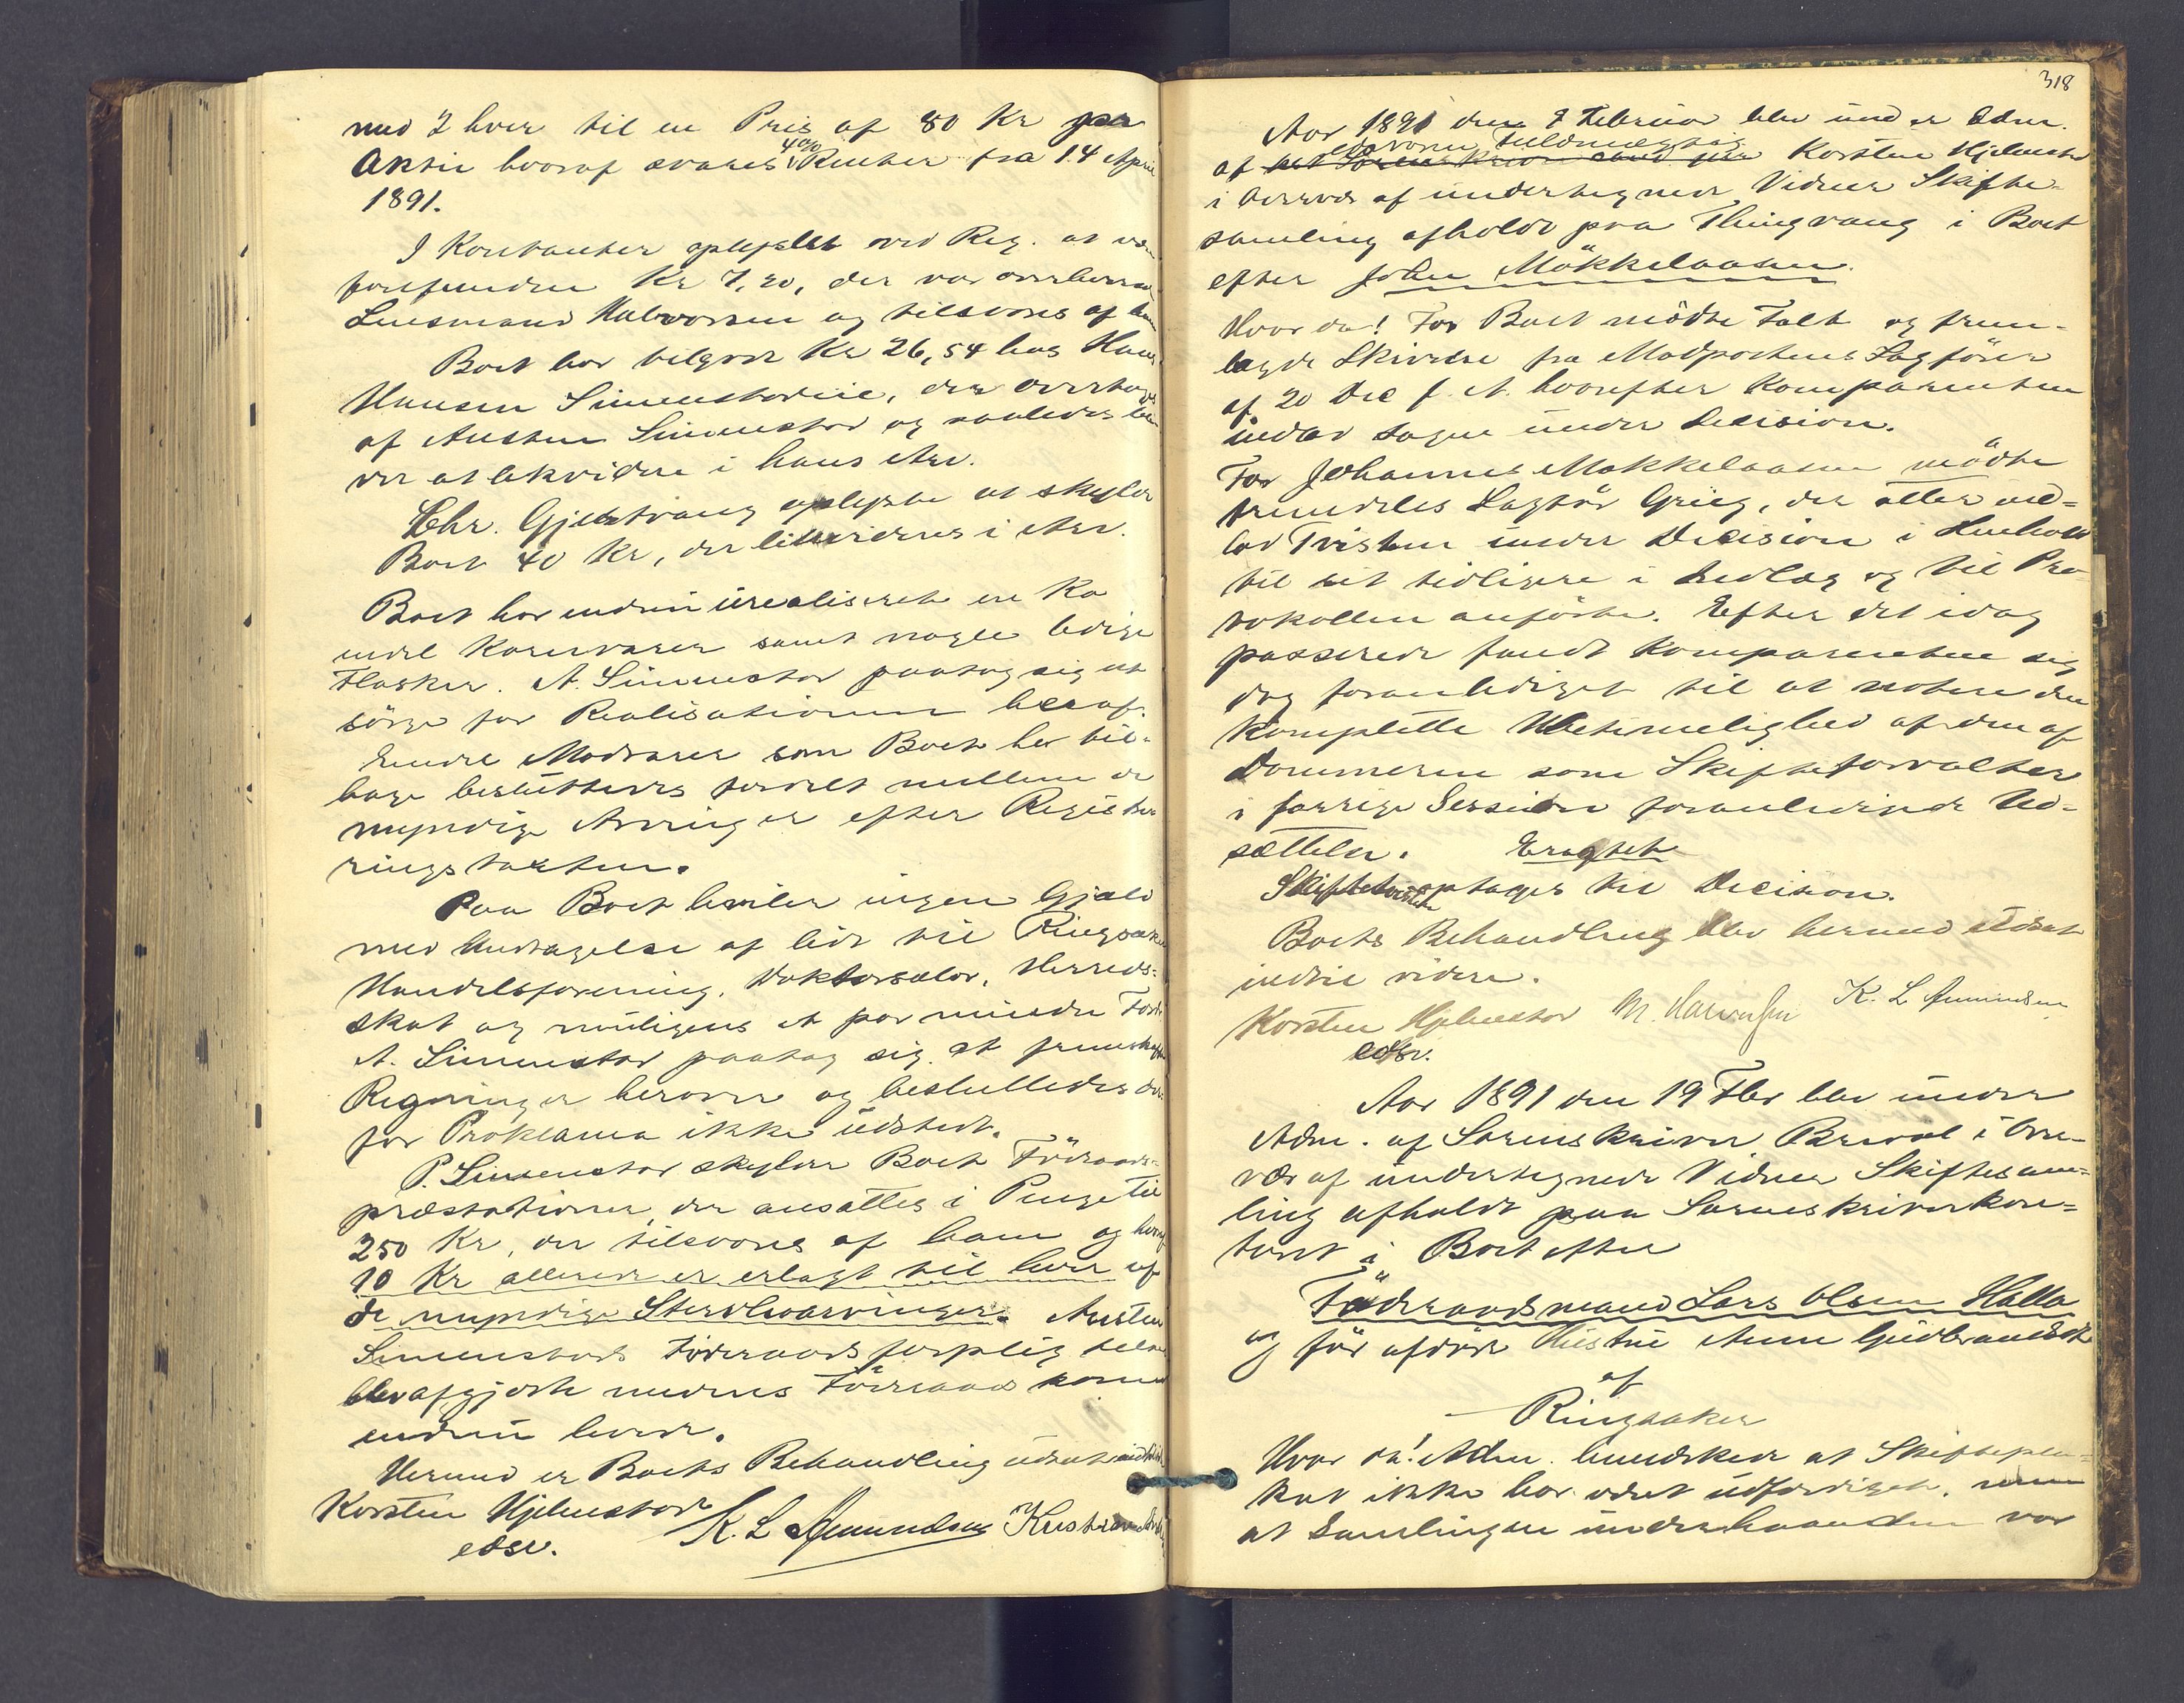 med 2 hver til en Pris af 80 Kr per
Aktie hvoraf svares 4% Renter fra 14 April
1891.
I Kontanter oplystes ved Reg. at være
forefunden Kr 7,20, der var overleveret
Lensmand Halvorsen og tilsvares af ham
Boet har tilgode Kr 26,54 hos Hans
Hansen Simenstadeie, der overtages
af Austen Simenstad og saaledes bliver
der at likvidere i hans Arv.
Chr. Gjestvang oplyste at skylde
Boet 40 Kr, der likvideres i Arv.
Boet har endnu urealiseret en Ko
endel Kornvarer samt nogle ledige
Flasker. A. Simenstad paatog sig at
sörge for Realisationen heraf.
Endel Madvarer som Boet har til-
bage besluttedes fordelt mellem de
myndige Arvinger efter Registre-
ringstaxten.
Paa Boet hviler ingen Gjæld
med Undtagelse af lidt til Ringsaker
Handelsforening, Doktorsalær, Herreds-
skat og muligens et par mindre Ford.
A. Simenstad paatog sig at fremskaffe
Regninger herover og besluttedes der-
for Proklama ikke udstedt.
P. Simenstad skylder Boet Föderaads-
præstationer, der ansattes i Penge til
250 Kr, der tilsvares af ham og hvoraf
10 Kr allerede er erlagt til hver af
de myndige Stervboarvinger. Austen
Simenstads Föderaadsforpligtelse
blev afgjort medens Föderaadskonen
endnu levede.
Hermed er Boets Behandling udsat indtil
Korsten Hjelmstad K. L Amundsen Kristian
edsv.
318
Aar 1891 den 7 Februar blev under Adm.
edsvoren Fuldmægtig
af Korsten Hjelmstad
i Overvær af undertegnede Vidner Skifte-
samling afholdt paa Thingvang i Boet
efter John Mökkelaasen.
Hvor da! For Boet mödte Falk og frem-
lagde Skrivelse fra Modpartens Sagförer
af 20 Dec f. A. hvorefter Komparenten
indlod Sagen under Decision.
For Johannes Mökkelaasen mödte
fremdeles Sagför Grieg, der atter ind-
lod Tvisten under Decision i Henhold
til sit tidligere i Indlæg og til Pro-
tokollen anförte. Efter det idag
passerede fandt Komparenten sig
dog foranlediget til at notere den
komplette Ubetimelighed af den af
Dommeren som Skifteforvalter
i forrige Session foranledigede Ud-
sættelse. Eragtet
Skiftetvisten optages til Decision.
Boets Behandling blev hermed udsat
indtil videre.
Korsten Hjelmstad M. Halvorsen K. L Amundsen
edsv.
Aar 1891 den 19 Fbr blev under
Adm. af Sorenskriver Breval i Over-
vær af undertegnede Vidner Skiftesam-
ling afholdt paa Sorenskriverkon-
toret i Boet efter
Föderaadsmand Lars Olsen Halla
og för afdöde Hustru Anne Gudbrandsdtr
af
Ringsaker
Hvor da! Adm. bemærkede at Skiftepla-
kat ikke har været udfærdiget, men
at Samlingen underhaanden var